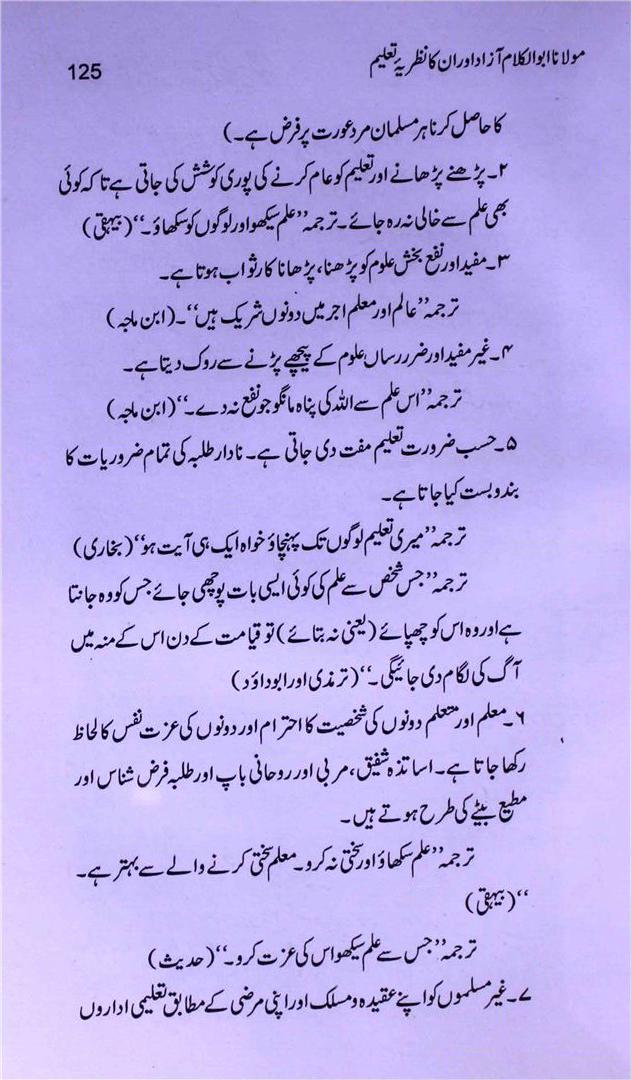 مولانا ابوالکلام آزاد اور ان کا نظریۂ تعلیم
125
کا حاصل کرنا ہر مسلمان مرد عورت پر فرض ہے۔)
۲۔ پڑھنے پڑھانے اور تعلیم کو عام کرنے کی پوری کوشش کی جاتی ہے تا کہ کوئی
بھی علم سے خالی نہ رہ جائے۔ ترجمہ ’’علم سیکھو اور لوگوں کو سکھاؤ۔‘‘ (بیہقی)
۳۔ مفید اور نفع بخش علوم کو پڑھنا، پڑھانا کارِ ثواب ہوتا ہے۔
ترجمہ ’’عالم اور معلم اجر میں دونوں شریک ہیں‘‘۔ (ابن ماجہ)
۴۔ غیر مفید اور ضرر رساں علوم کے پیچھے پڑنے سے روک دیتا ہے۔
ترجمہ ’’اس علم سے اللہ کی پناہ مانگو جو نفع نہ دے۔‘‘ (ابن ماجہ)
۵۔ حسب ضرورت تعلیم مفت دی جاتی ہے۔ نادار طلبہ کی تمام ضروریات کا
بندوبست کیا جاتا ہے۔
ترجمہ ’’میری تعلیم لوگوں تک پہنچاؤ خواہ ایک ہی آیت ہو‘‘ (بخاری)
ترجمہ ’’جس شخص سے علم کی کوئی ایسی بات پوچھی جائے جس کو وہ جانتا
ہے اور وہ اس کو چھپائے (یعنی نہ بتائے) تو قیامت کے دن اس کے منہ میں
آگ کی لگام دی جائیگی۔‘‘ (ترمذی اور ابوداؤد)
۶۔ معلم اور متعلم دونوں کی شخصیت کا احترام اور دونوں کی عزت نفس کا لحاظ
رکھا جاتا ہے۔ اساتذہ شفیق، مربی اور روحانی باپ اور طلبہ فرض شناس اور
مطیع بیٹے کی طرح ہوتے ہیں۔
ترجمہ ’’علم سکھاؤ اور سختی نہ کرو۔ معلم سختی کرنے والے سے بہتر ہے۔
‘‘ (بیہقی)
ترجمہ ’’جس سے علم سیکھو اس کی عزت کرو۔‘‘ (حدیث)
۷۔ غیر مسلموں کو اپنے عقیدہ و مسلک اور اپنی مرضی کے مطابق تعلیمی اداروں